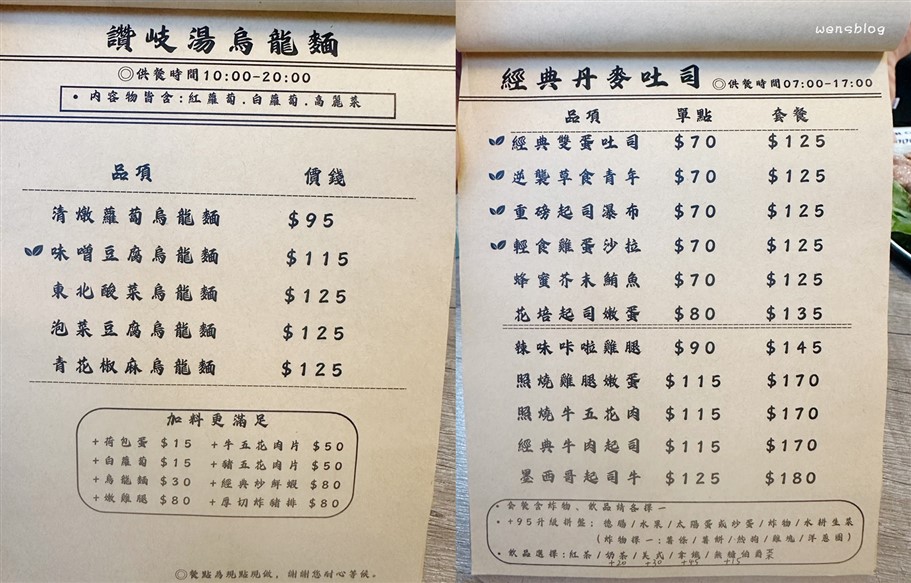 讚岐湯烏龍麵
◎供餐時間10:00-20:00
• 內容物皆含:紅蘿蔔.白蘿蔔.高麗菜
品項 價錢
清燉蘿蔔烏龍麵 $95
味噌豆腐烏龍麵 $115
東北酸菜烏龍麵 $125
泡菜豆腐烏龍麵 $125
青花椒麻烏龍麵 $125
加料更滿足
+荷包蛋 $15 +牛五花肉片 $50
+白蘿蔔 $15 +豬五花肉片 $50
+烏龍麵 $30 +經典炒鮮蝦 $80
+嫩雞腿 $80 +厚切炸豬排 $80
◎餐點為現點現做,謝謝您耐心等候。
wensblog
經典丹麥吐司 ◎供餐時間07:00-17:00
品項 單點 套餐
經典雙蛋吐司 $70 $125
逆襲草食青年 $70 $125
重磅起司瀑布 $70 $125
輕食雞蛋沙拉 $70 $125
蜂蜜芥末鮪魚 $70 $125
花培起司嫩蛋 $80 $135
辣味咔啦雞腿 $90 $145
照燒雞腿嫩蛋 $115 $170
照燒牛五花肉 $115 $170
經典牛肉起司 $115 $170
墨西哥起司牛 $125 $180
• 套餐含炸物、飲品請各擇一
• +95升級拼盤: 德腸/水果/太陽蛋或炒蛋/炸物/水耕生菜
(炸物擇一:薯條/薯餅/熱狗/雞塊/洋蔥圈)
• 飲品選擇:紅茶/奶茶/美式/拿鐵/無糖伯爵茶
+20 +30 +45 +15